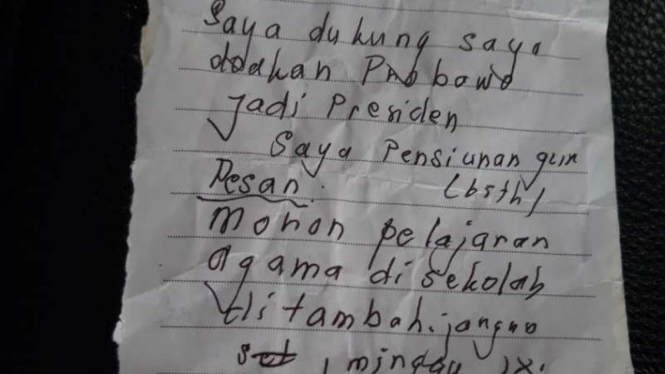 Saya dukung saya
doakan Prabowo
Jadi Presiden
Saya Pensiunan guru
Pesan: (bsth)
Mohon pelajaran
agama di sekolah
ditambah. jangan
1 minggu 1x.